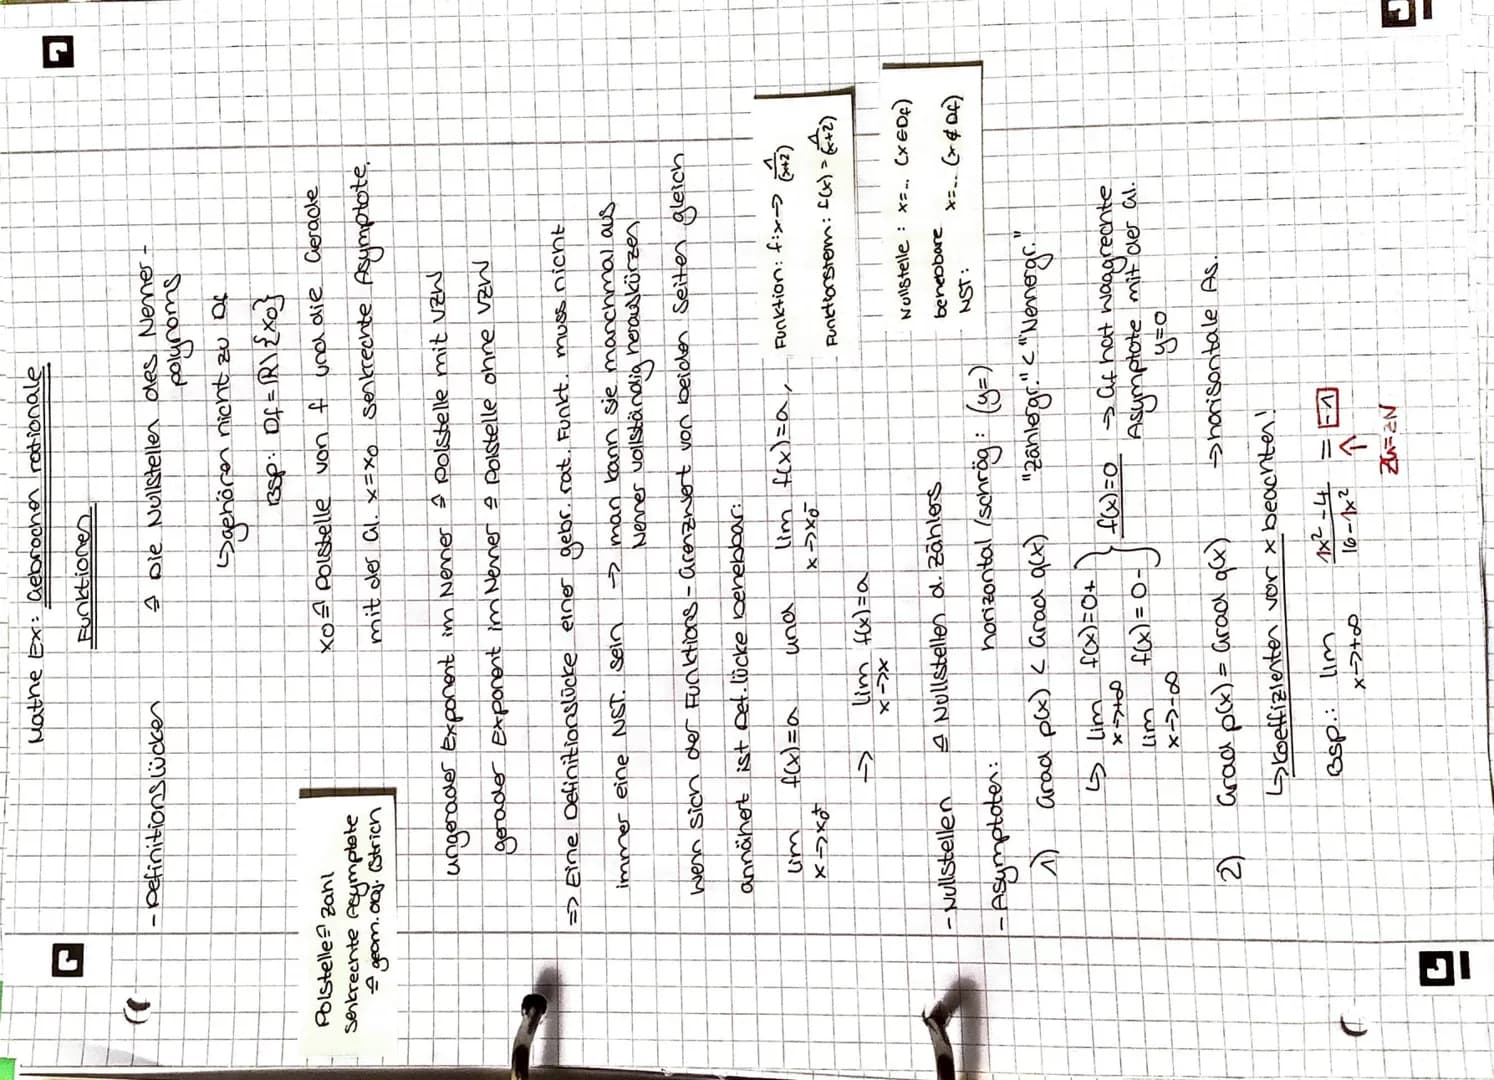 Mathe Ex: Gebrochen rationale
Funktionen
- Definitionslücken ≙ Die Nullstellen des Nenner-
polynoms
↳ gehören nicht zu Df
Bsp: Df = ℝ\{x0}
Polstelle ≙ Zahl
Senkrechte Asymptote
≙ geom. Obj. (Strich
x0 ≙ Polstelle von f und die Gerade
mit der Gl. x=x0 senkrechte Asymptote.
ungerader Exponent im Nenner ≙ Polstelle mit VZW
gerader Exponent im Nenner ≙ Polstelle ohne VZW
=> Eine Definitionslücke einer gebr. rat. Funkt. muss nicht
immer eine NST. sein -> man kann sie manchmal aus
Nenner vollständig herauskürzen
Wenn sich der Funktions-Grenzwert von beiden Seiten gleich
annähert ist Def.lücke behebbar:
lim f(x)=a und lim f(x)=a,
x->x0+ x->x0-
-> lim f(x)=a
x->x
Funktion: f:x-> 1/(x+2)
Funktionsterm: f(x) = 1/(x+2)
- Nullstellen ≙ Nullstellen d. Zählers
Nullstelle: x=... (x∈Df)
behebbare x=... (x∉Df)
NST:
- Asymptoten: horizontal/schräg: (y=)
1) Grad p(x) < Grad q(x) "Zählergr." < "Nennergr."
↳ lim f(x)=0+ } f(x)=0 -> Gf hat waagrechte
x->+∞ Asymptote mit der Gl.
lim f(x)=0- y=0
x->-∞
2) Grad p(x) = Grad q(x) -> horisontale As.
↳ Koeffizienten vor x beachten!
Bsp.: lim 1x²-4/16-1x² = -1
x->+∞ ↑
ZG=NG